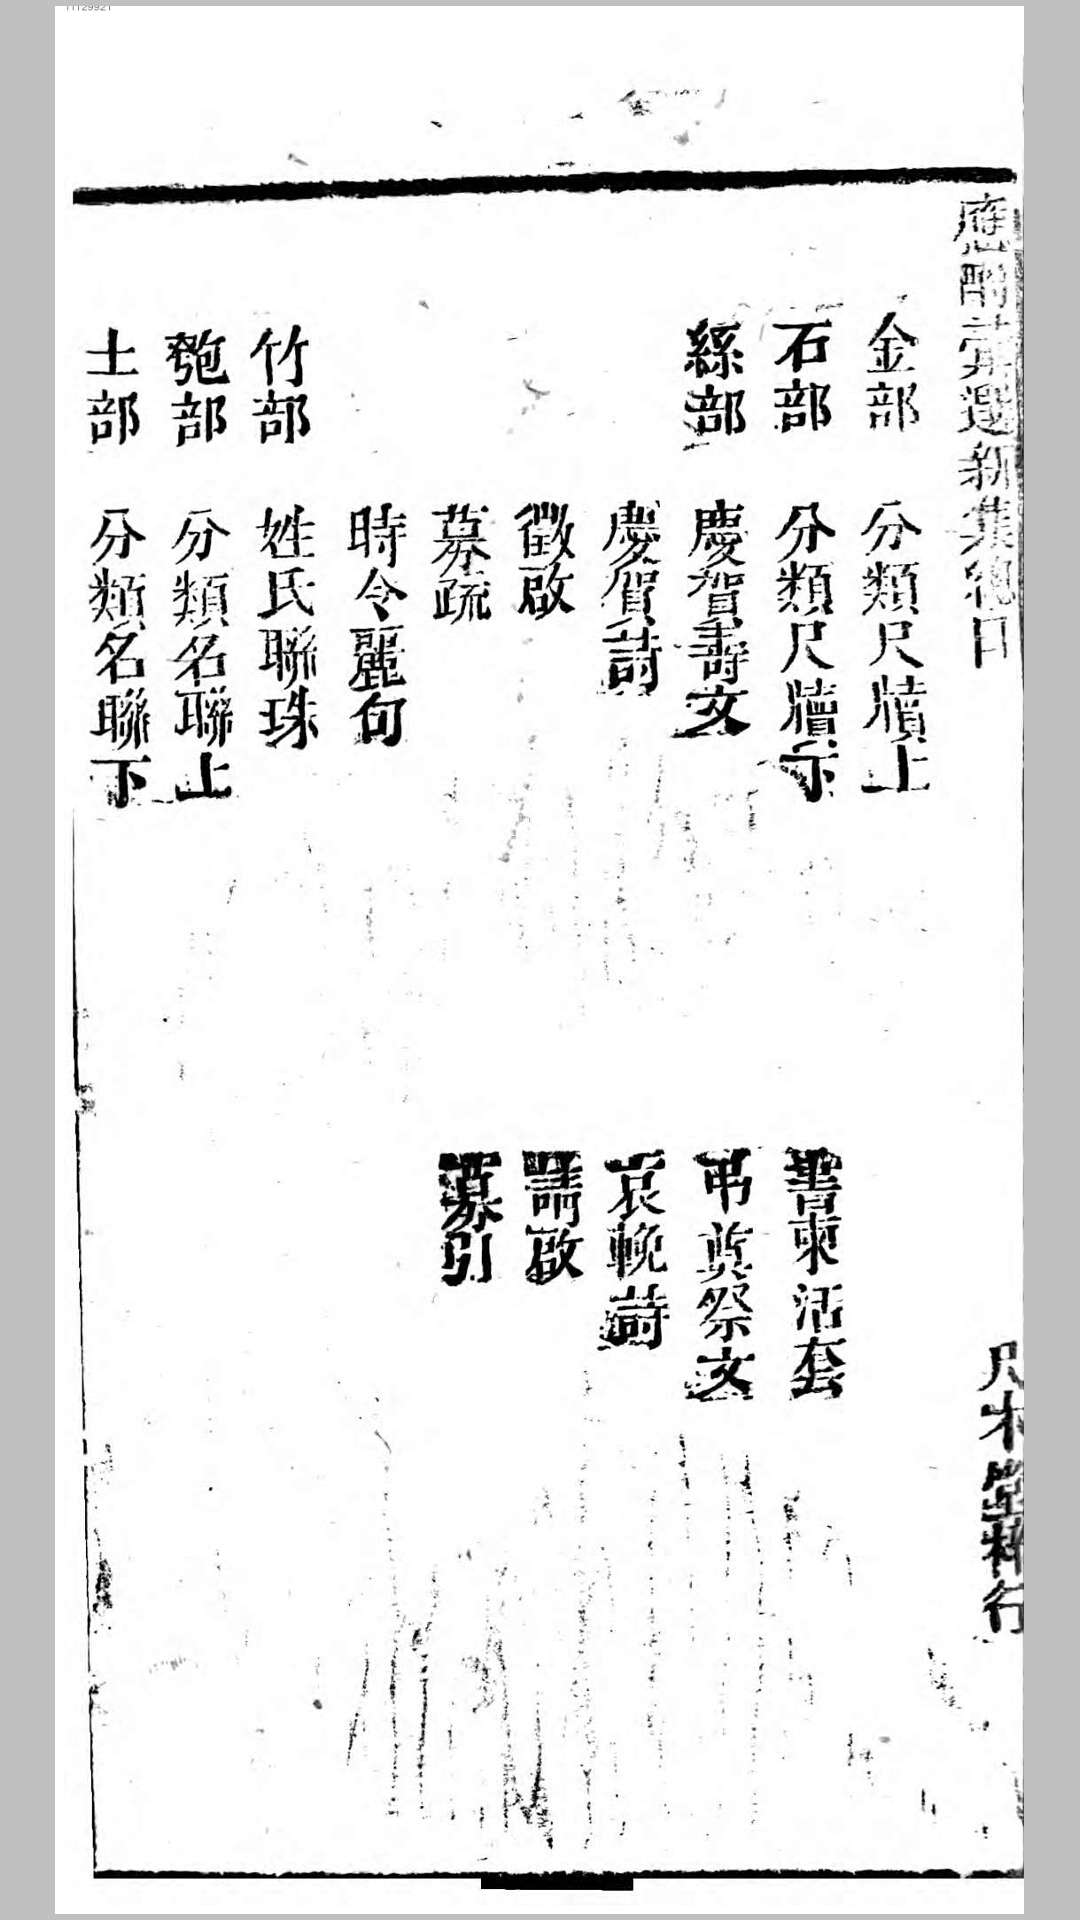 應酬彙選新集總目
尺木堂梓行
金部 分類尺牘上
石部 分類尺牘下 書柬活套
絲部 慶賀壽文 弔奠祭文
慶賀詩 哀輓詩
徵啟 請啟
募疏 募引
時令麗句
竹部 姓氏聯珠
匏部 分類名聯上
土部 分類名聯下